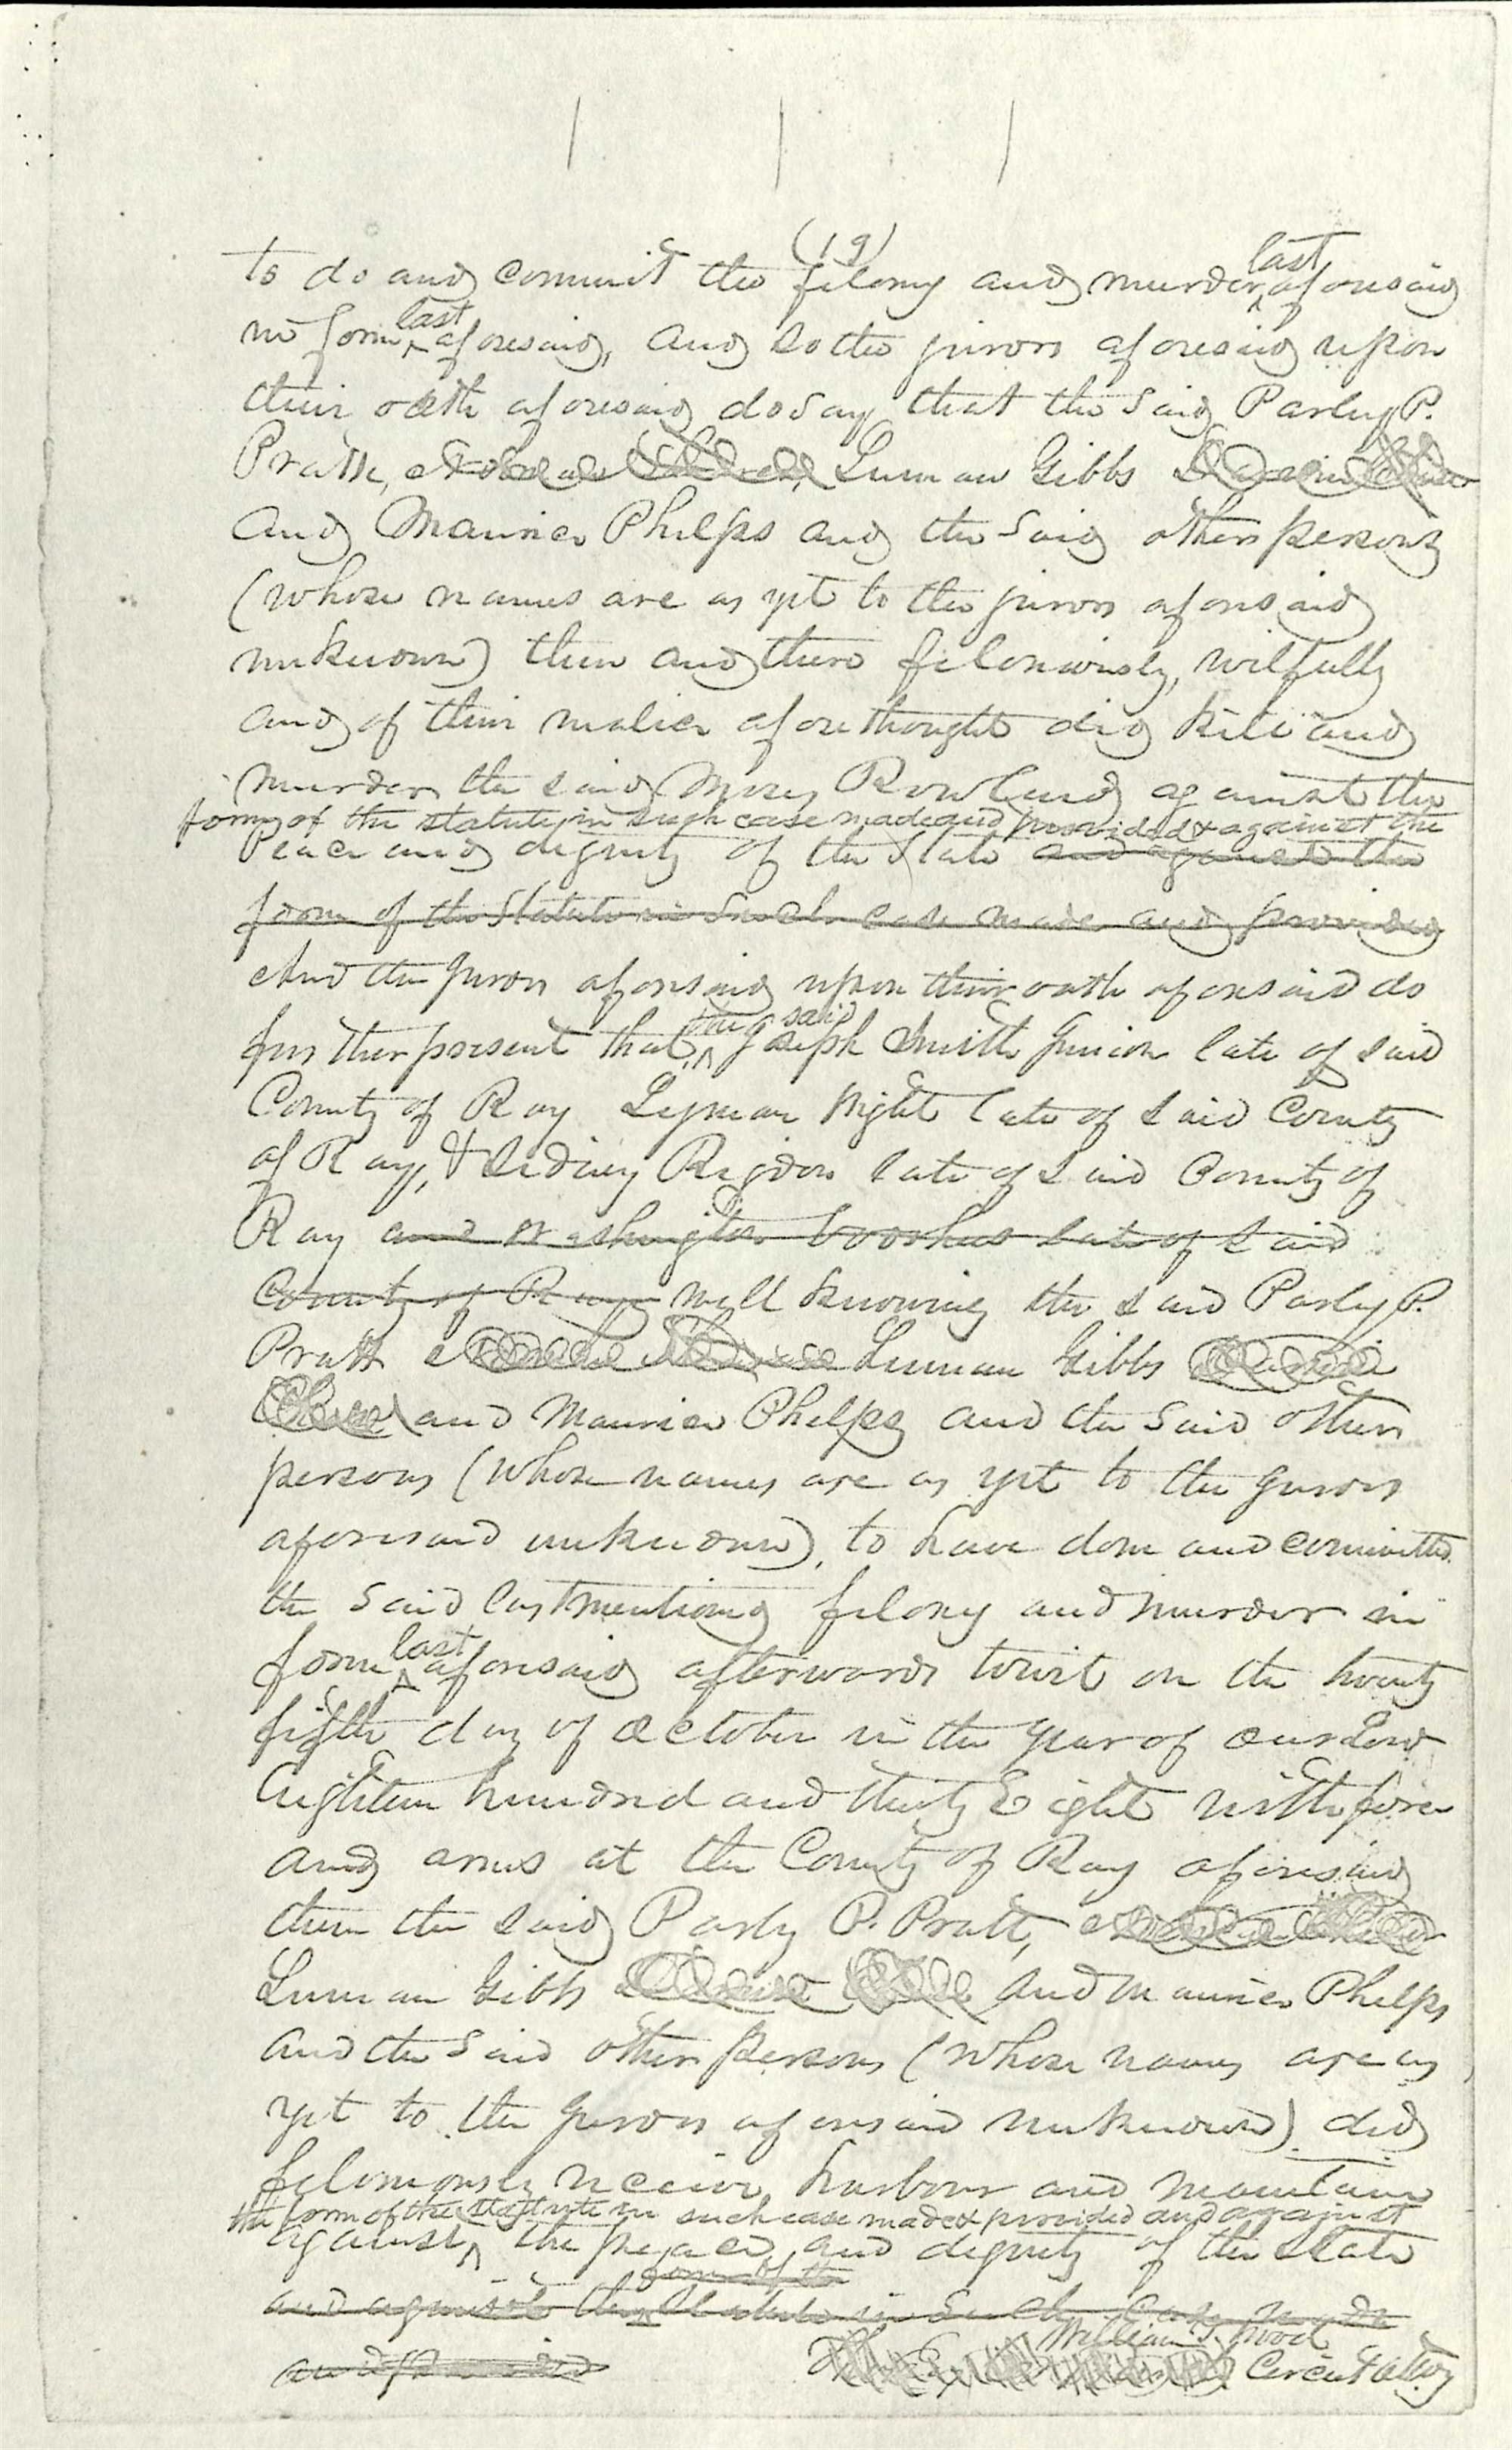 (19)
to do and commit the felony and murder last aforesaid
in form last aforesaid, and so the jurors aforesaid upon
their oath aforesaid do say that the said Parley P.
Pratt, Luman Gibbs
and Maurice Phelps and the said other persons
(whose names are as yet to the jurors aforesaid
unknown) then and there feloniously, wilfully
and of their malice aforethought did kill and
murder the said Moses Rowland against the
form of the statute in such case made and provided & against the
Peace and dignity of the State and against the
form of the Statute in such case made and provided
And the Jurors aforesaid upon their oath aforesaid do
further present that the said Joseph Smith Junior late of said
County of Ray Lyman Wight late of said County
of Ray, & Sidney Rigdon late of said County of
Ray and Washington Voorhees late of said
County of Ray well knowing the said Parley P.
Pratt Luman Gibbs
and Maurice Phelps and the said other
persons (whose names are as yet to the Jurors
aforesaid unknown), to have done and committed
the said last mentioned felony and murder in
form last aforesaid afterwards towit on the twenty
fifth day of October in the year of our Lord
Eighteen hundred and thirty Eight with force
and arms at the County of Ray aforesaid
them the said Parly P. Pratt,
Luman Gibbs and Maurice Phelps
and the said other persons (whose names are as
yet to the Jurors aforesaid unknown) did
feloniously receive, harbour and maintain
the form of the statute in such case made & provided and against
against the peace and dignity of the State
form of the
and against the Statute in such case made
and provided
William T. Wood
Circuit Atty